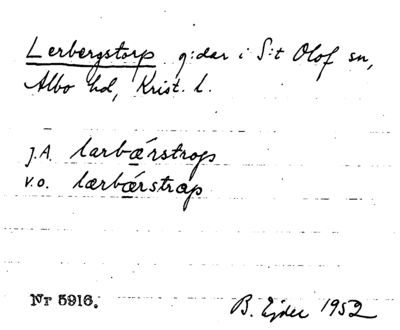 Lerbergstorp g:dar i S:t Olof sn,
Albo hd, Krist. l.
J.A. larbǽrstrop
v.o. lærbǽrstrap
Nr 5916.
B. Ejder 1952